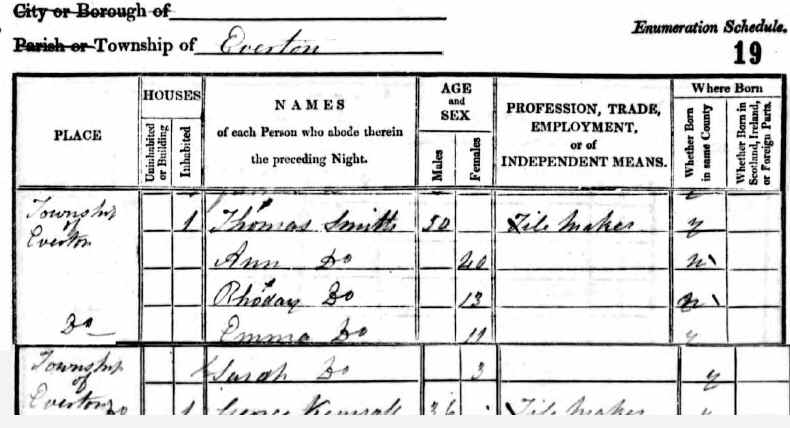 City or Borough of
Enumeration Schedule.
Parish or Township of Everton
19
PLACE
HOUSES
Uninhabited or Building
Inhabited
NAMES
of each Person who abode therein
the preceding Night.
AGE
and
SEX
Males
Females
PROFESSION, TRADE,
EMPLOYMENT,
or of
INDEPENDENT MEANS.
Where Born
Whether Born in same County
Whether Born in Scotland, Ireland, or Foreign Parts.
Township of Everton 1 Thomas Smith 50 Tile Maker y
Ann Do 40 n
Rhoday Do 13 n
Do Emma Do 11 y
Township of Sarah Do 3 y
Everton Do 1 George 36 Tile Maker y